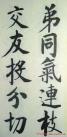 弟同氣連枝
交友投分切